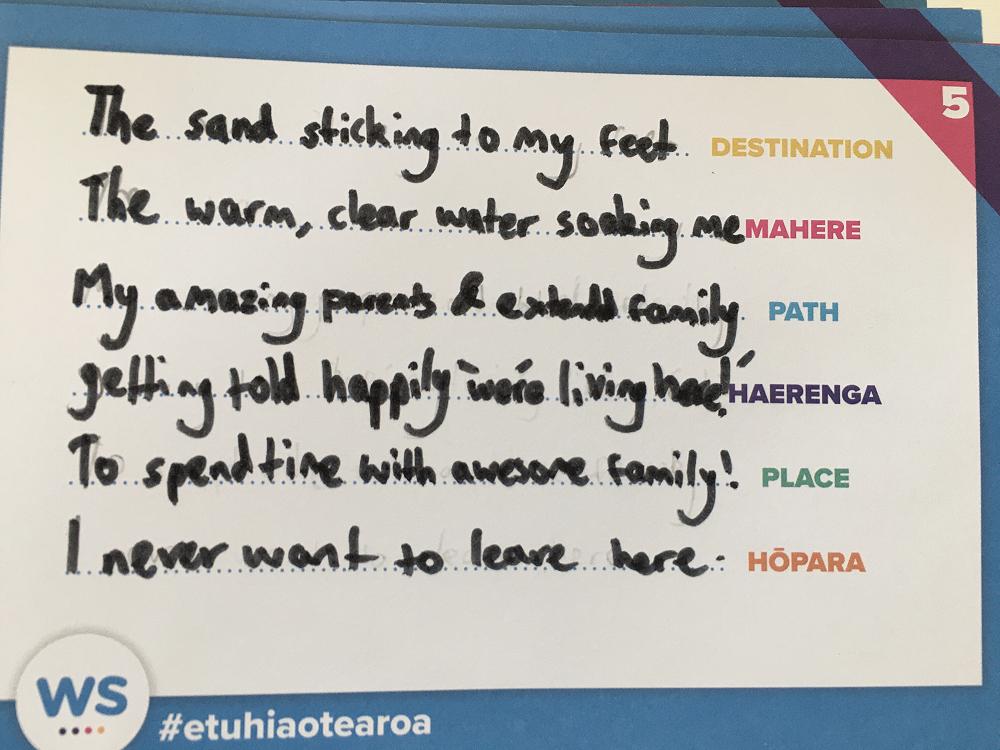 5
The sand sticking to my feet DESTINATION
The warm, clear water soaking me MAHERE
My amazing parents & extendd family PATH
getting told happily "we're living here!" HAERENGA
To spend time with awesome family! PLACE
I never want to leave here. HŌPARA
WS
#etuhiaotearoa